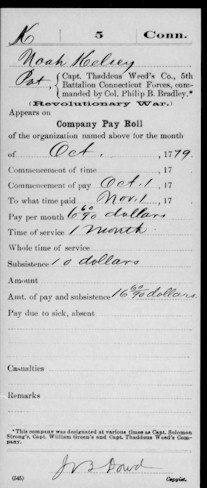 K | 5 | Conn.
Noah Kelsey
Pvt, { Capt. Thaddeus Weed's Co., 5th
Battalion Connecticut Forces, com-
manded by Col. Philip B. Bradley.*
(Revolutionary War.)
Appears on
Company Pay Roll
of the organization named above for the month
of Oct, , 1779.
Commencement of time , 17
Commencement of pay Oct. 1 , 17
To what time paid Nov. 1 , 17
Pay per month 6 60/90 dollars
Time of service 1 month
Whole time of service
Subsistence 10 dollars
Amount
Amt. of pay and subsistence 16 60/90 dollars
Pay due to sick, absent
Casualties
Remarks
*This company was designated at various times as Capt. Solomon
Strong's, Capt. William Green's and Capt. Thaddeus Weed's Com-
pany.
J B Dowd
(545) Copyist.